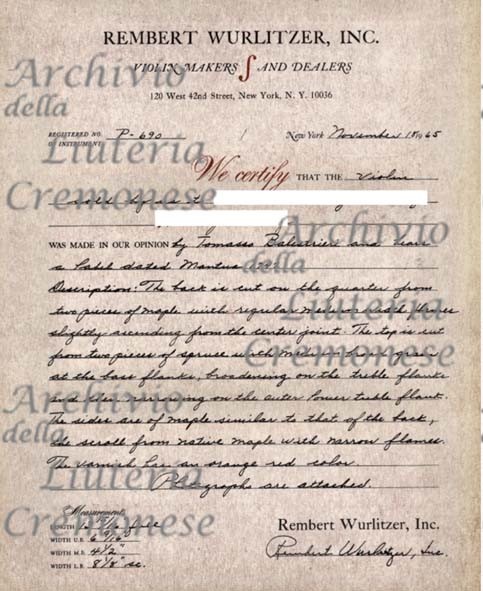 REMBERT WURLITZER, INC.
VIOLIN MAKERS AND DEALERS
120 West 42nd Street, New York, N. Y. 10036
REGISTERED NO. P-690
OF INSTRUMENT
New York November 18 1965
We certify THAT THE Violin
sold by us to
WAS MADE IN OUR OPINION by Tomasso Balestrieri and bears
a label dated Mantua
Description: The back is cut on the quarter from
two pieces of maple with regular medium width flames
slightly ascending from the center joint. The top is cut
from two pieces of spruce with medium grain
at the bass flanks, broadening on the treble flank
and narrowing on the outer lower treble flank.
The sides are of maple similar to that of the back,
the scroll from native maple with narrow flames.
The varnish has an orange red color.
Photographs are attached.
Measurements
LENGTH
WIDTH U.B. 6 9/16"
WIDTH M.B. 4 1/2"
WIDTH L.B. 8 1/8" sc.
Rembert Wurlitzer, Inc.
Rembert Wurlitzer, Inc.
Archivio
della
Liuteria
Cremonese
Archivio
della
Liuteria
Cremonese
Archivio
della
Liuteria
Cremonese